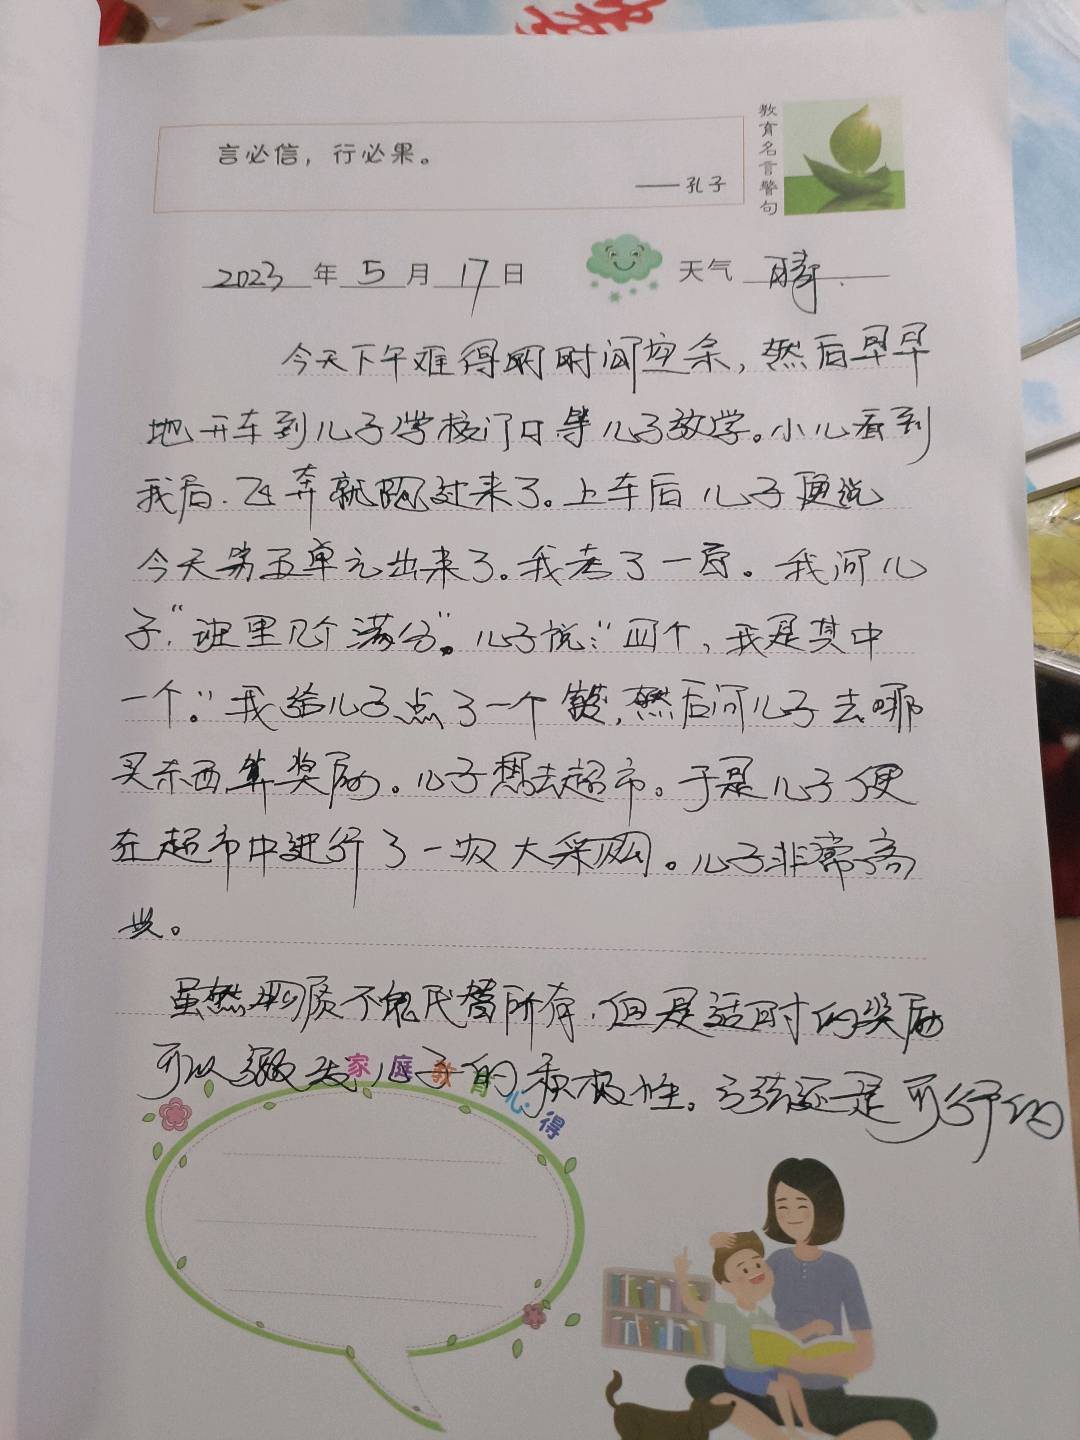 言必信，行必果。
——孔子
教育名言警句
2023年5月17日 天气 晴.
今天下午难得时间空余，然后早早
地开车到儿子学校门口等儿子放学。小儿看到
我后.飞奔就跑过来了。上车后儿子便说
今天第五单元出来了。我考了一百。我问儿
子，“班里几个满分”。儿子说：“四个，我是其中
一个。”我给儿子点了一个赞，然后问儿子去哪
买东西,算奖励。儿子想去超市。于是儿子便
在超市中进行了一次大采购。儿子非常高
兴。
虽然物质不能代替所有.但是适时的奖励
可以激发儿子的积极性。应该还是可行的
家庭教育心得